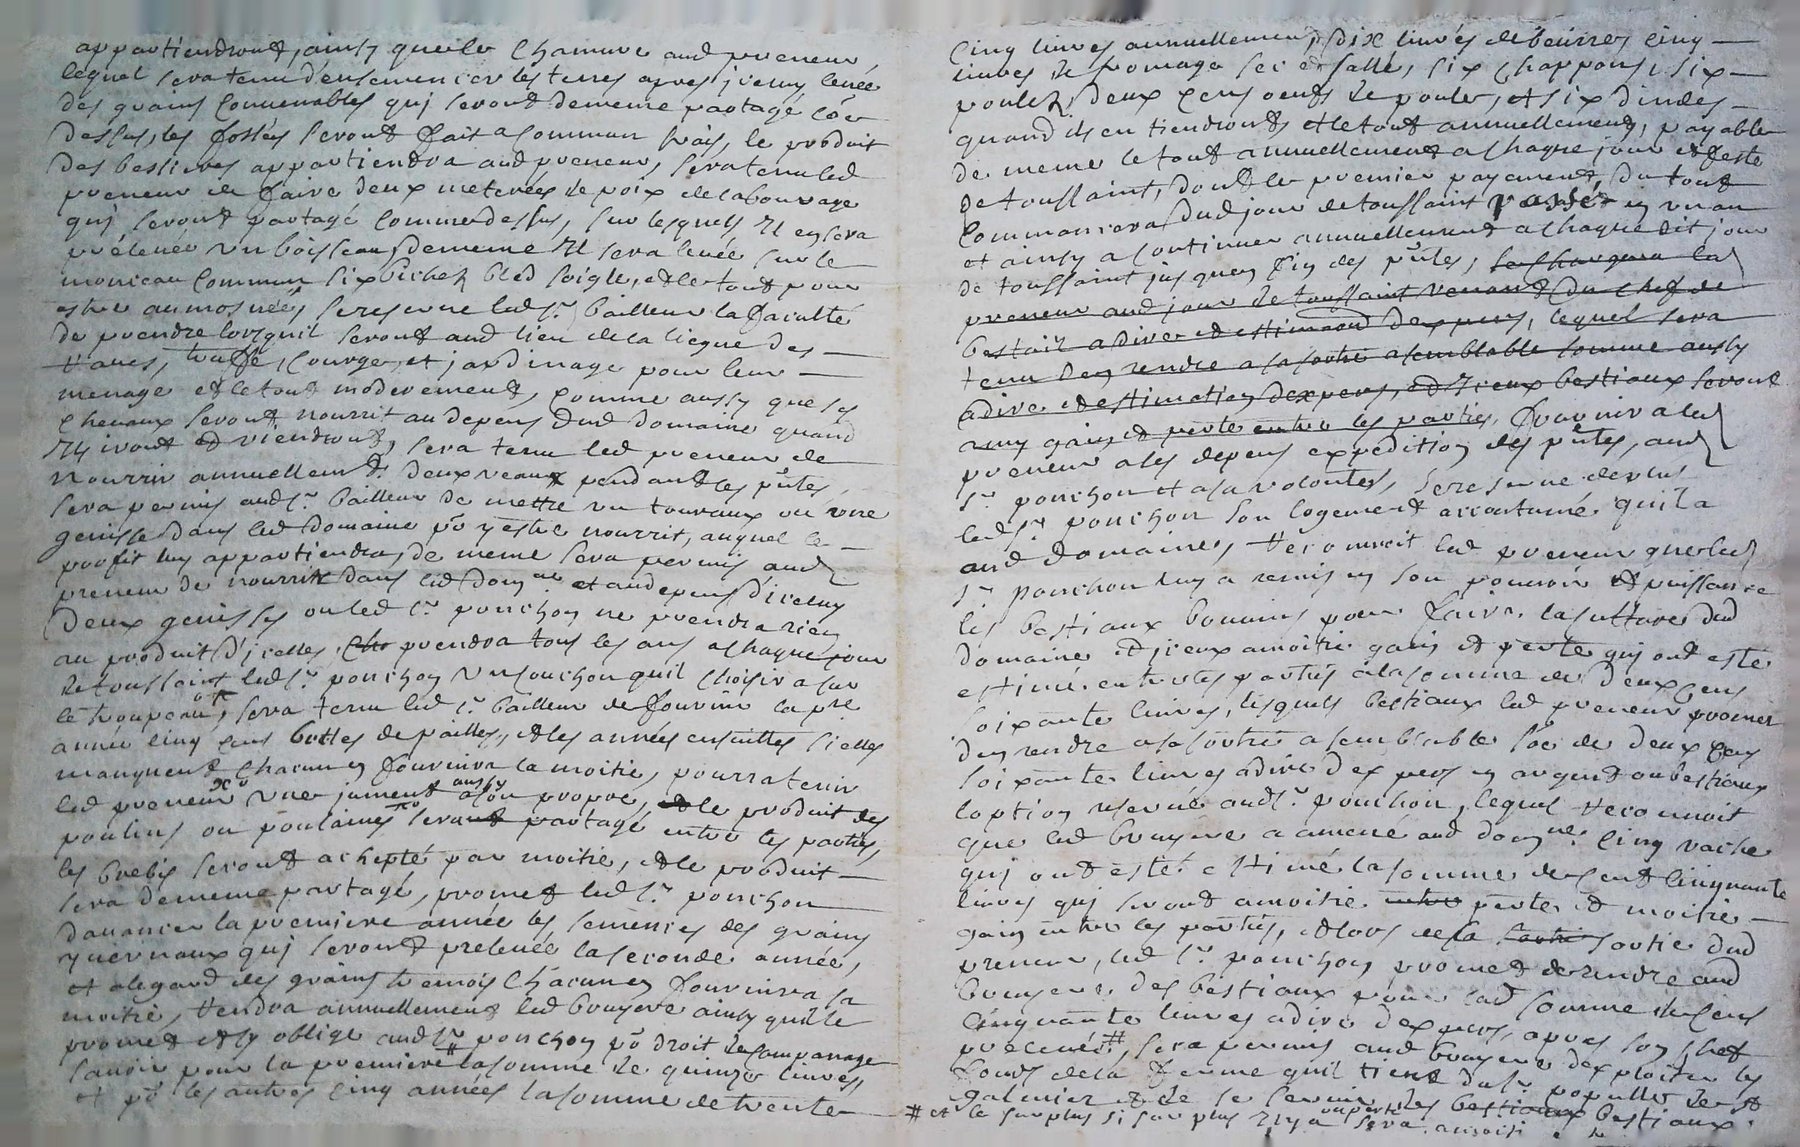 appartiendront, ainsy que le chanvre aud preneur,
lequel sera tenu d'ensemencer les terres apres icelluy levée
des grains convenables qui seront de meme partagé coe
dessus, les fossés seront fait a commun frais, le produit
des bestieres appartiendra aud preneur, sera tenu led
preneur de faire deux meterées de poix de labourage
qui seront partagé comme dessus, sur lesquels il en sera
prélevée un boisseau, de meme il sera levée sur le
monceau commun six bichez bled soigle, et le tout pour
estre aumosnées se reserve led sr. bailleur la faculté
de prendre lorsquil seront aud lieu de la liegue des
raves, truffe, courge, et jardinage pour leur
menage et le tout moderement, comme aussy que ses
chevaux seront nourrit au depens dud domaine quand
ils iront et viendront, sera tenu led preneur de
nourrir annuellemt. deux veaux pendant les pntes,
sera permis aud sr. bailleur de mettre un toureaux ou une
genisse dans led domaine po y estre nourrit, auquel le
profit luy appartiendra, de meme sera permis aud
preneur de nourrir dans led domne et au depens d'iceluy
deux genisses ou led sr. ponchon ne prendra rien
au produit d'icelles, prendra tous les ans a chaque jour
de toussaint led sr. ponchon un couchon quil choisira sur
le troupeau, sera tenu led sr. bailleur de fournir la pre
année cinq cens bottes de pailles, et les années ensuittes sicelles
manquent chacun en fournira la moitié, pourra tenir
led preneur une jument aussy a son propre, le produit des
poulins ou poulaines sera partagé entre les parties,
les brebis seront achepté par moitié, et le produit
sera de meme partagé, promet led sr. ponchon
d'avancer la premiere année les semences des grains
yvernaux qui seront prelevée la seconde année,
et a legard des grains tremois chacun en fournira la
moitié, rendra annuellement led bruyere ainsy quil le
promet et sy oblige aud sr. ponchon po droit de companage
savoir pour la premiere # la somme de quinze livres,
et po les autres cinq années la somme de trente
cinq livres annuellement, dix livres de beurres cinq
livres de fromage sec et sallé, six chappons, six
poulez, deux cens oeufs de poule, et six dindes
quand ils en tiendront, et le tout annuellement, payable
de meme le tout annuellement a chaque jour et feste
de toussaint, dont le premier payement du tout
commancera dud jour de toussaint passé en un an
et ainsy a continuer annuellement a chaque dit jour
de toussaint jusquen fin des pntes, se chargera led
preneur aud jour de toussaint venant du chef de
bestail a dire et estimaon dexpers, lequel sera
tenu den rendre a sa sortie a semblable somme aussy
a dire et estimation dexpers, et iceux bestiaux seront
a my gains et perte entre les parties, fournir a led
preneur a ses depens expedition des pntes, aud
sr. ponchon et a sa volontés, se reserve de plus
led sr. ponchon son logement accoutumé quil a
aud domaine, reconnoit led preneur que led
sr. ponchon luy a remis en son pouvoir et puissance
les bestiaux bouvins pour faire la culture dud
domaine et iceux a moitié gain et perte qui ont este
estimé entre les parties a la somme de deux cens
soixante livres, lesquels bestiaux led preneur promet
den rendre a sa sortie a semblable soe de deux cens
soixante livres a dire dexpers en argent ou bestiaux
loption reservé aud sr. ponchon, lequel reconnoit
que led bruyere a amené aud domne. cinq vache
qui ont esté estimé la somme de cent cinquante
livres qui seront a moitié entre perte et moitié
gain entre les parties, et lors de la sortie sortie dud
preneur, led sr. ponchon promet de rendre aud
bruyere des bestiaux pour lad somme de cens
cinquante livres a dire dexpers, apres son chef
prelevée #, sera permis aud bruyere dexploiter les
fonds de la ferme quil tient du sr. populle de st
galmier et de se servir des bestiaux bestiaux.
# et le surplus si surplus il y a ou perte sera a moitié